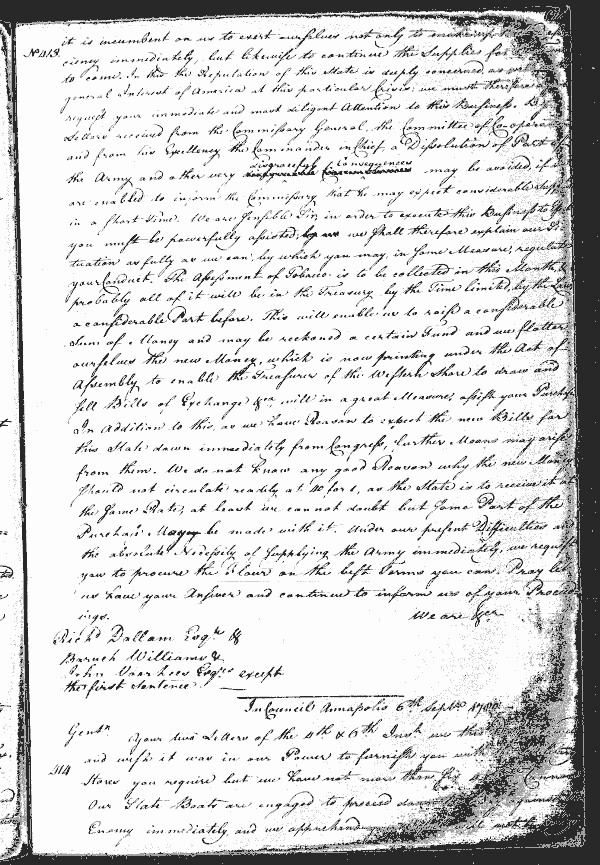 it is incumbent on us to exert ourselves not only to
No 413. ciency immediately, but likewise to continue the Supplies for
to come. In this the Reputation of this State is deeply concerned, as
general Interest of America at this particular Crisis; we must therefore
request your immediate and most diligent Attention to this Business. By
Letters received from the Commissary General, the Committee of Co-opera
and from his Excellency the Commander in Chief, a Dissolution of Part of
the Army and other very disgraceful Consequences may be avoided, if
are enabled to inform the Commissary that he may expect considerable
in a short Time. We are sensible Sir, in order to execute this Business to
you must be powerfully assisted, we shall therefore explain our Si
tuation as fully as we can, by which you may, in some Measure, regulate
your Conduct. The Assessment of Tobacco is to be collected in this Month, &
probably all of it will be in the Treasury by the Time limited, by the Law,
a considerable Part before. This will enable us to raise a considerable
Sum of Money and may be reckoned a certain Fund and we flatter
ourselves the new Money, which is now printing under the Act of
Assembly to enable the Treasurer of the Western Shore to draw and
sell Bills of Exchange &ca will in a great Measure, assist your Purchase
In Addition to this, as we have Reason to expect the new Bills for
this State down immediately from Congress, further Means may arise
from them. We do not know any good Reason why the new Money
should not circulate readily at 40 for 1, as the State is to receive it at
the same Rate, at least we cannot doubt but some Part of the
Purchase may be made with it. Under our present Difficulties and
the absolute Necessity of supplying the Army immediately, we request
you to procure the Flour on the best Terms you can. Pray let
us have your Answer and continue to inform us of your Proceed
ings.
We are &ca
Richd Dallam Esqr &
Baruch Williams &
John Voorhees Esqrs except
the first Sentence
In Council Annapolis 6th Septr 1780
Gentn Your two Letters of the 4th & 6th Inst. we
414 and wish it was in our Power to furnish you with
Stores you require but we have not more than six
Our State Boats are engaged to proceed down
Enemy immediately, and we apprehend